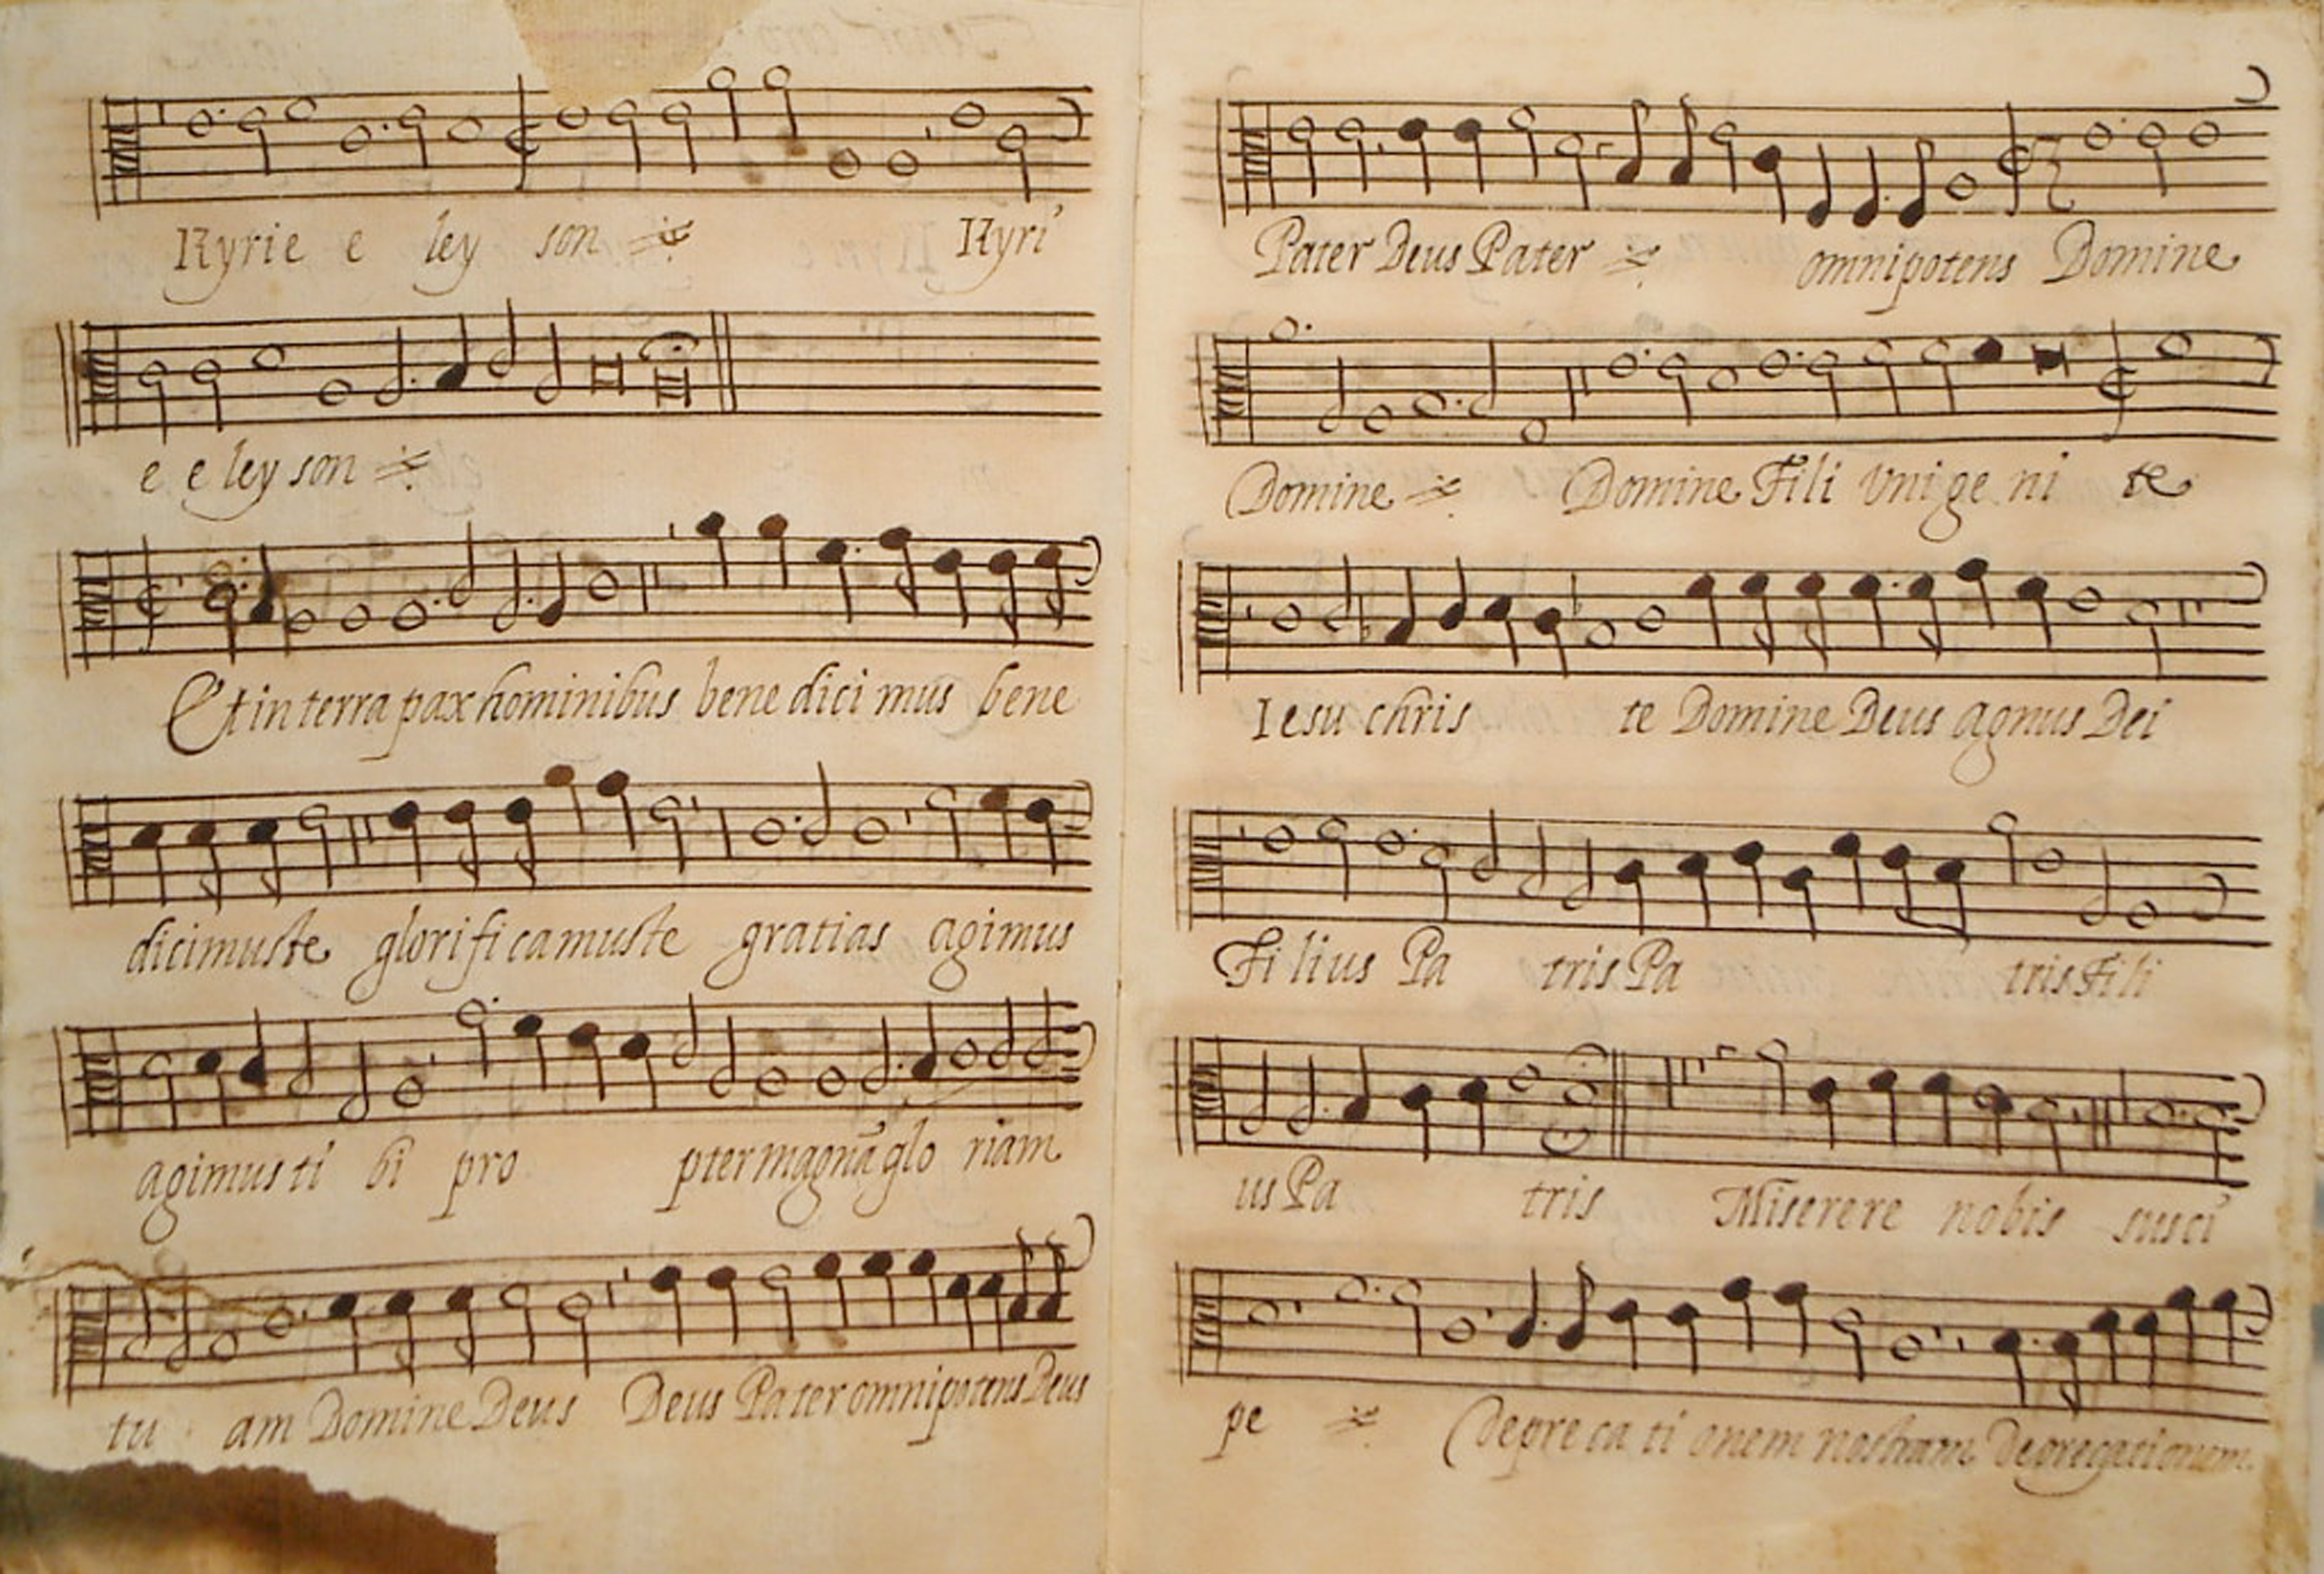 Kyrie e ley son Kyri
e e ley son
Et in terra pax hominibus bene dici mus bene
dicimuste glorificamuste gratias agimus
agimus ti bi pro pter magnā glo riam
tu am Domine Deus Deus Pater omnipotens Deus
Pater Deus Pater omnipotens Domine
Domine Domine Fili Vni ge ni te
Iesu chris te Domine Deus agnus Dei
Fi lius Pa tris Pa tris Fi li
us Pa tris Miserere nobis susci
pe depre ca ti onem nostram Deprecationem